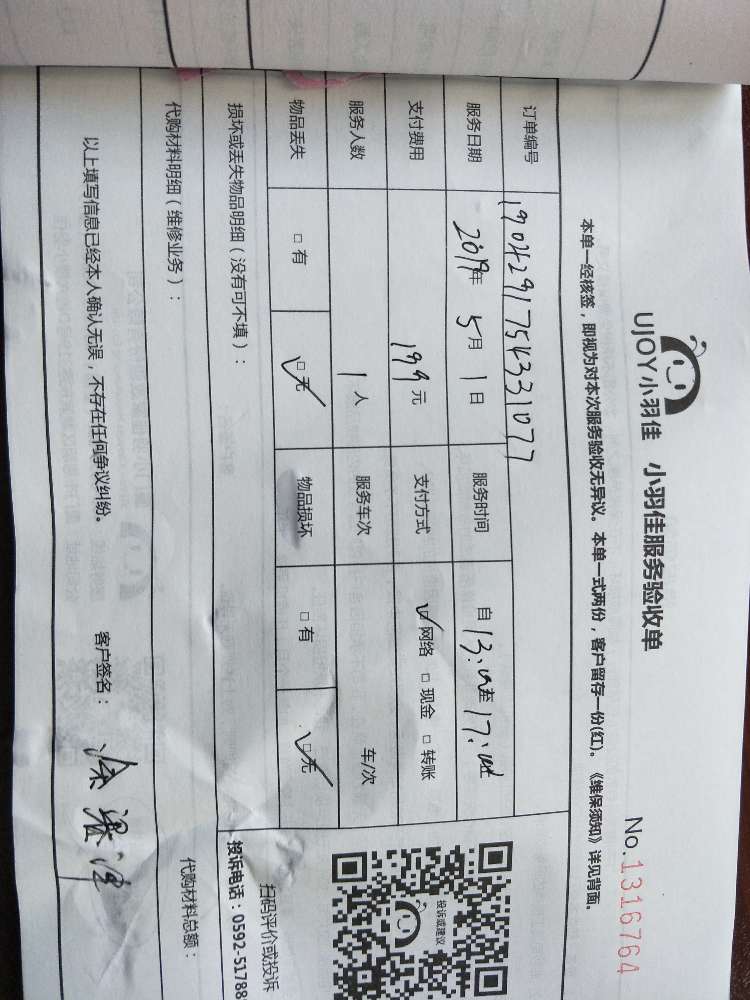 UJOY小羽佳 小羽佳服务验收单
No.1316764
本单一经核签，即视为对本次服务验收无异议。本单一式两份，客户留存一份(红)。《维保须知》详见背面。
订单编号 1904291754331077
服务日期 2019年 5月 1日 服务时间 自 13:00至 17:00时
支付费用 199元 支付方式 ☑网络 □现金 □转账
服务人数 1人 服务车次 车/次
物品丢失 □有 ☑无 物品损坏 □有 ☑无
损坏或丢失物品明细（没有可不填）：
投诉或建议
扫码评价或投诉
投诉电话：0592-51788
代购材料明细（维修业务）：
代购材料总额：
以上填写信息已经本人确认无误，不存在任何争议纠纷。 客户签名：